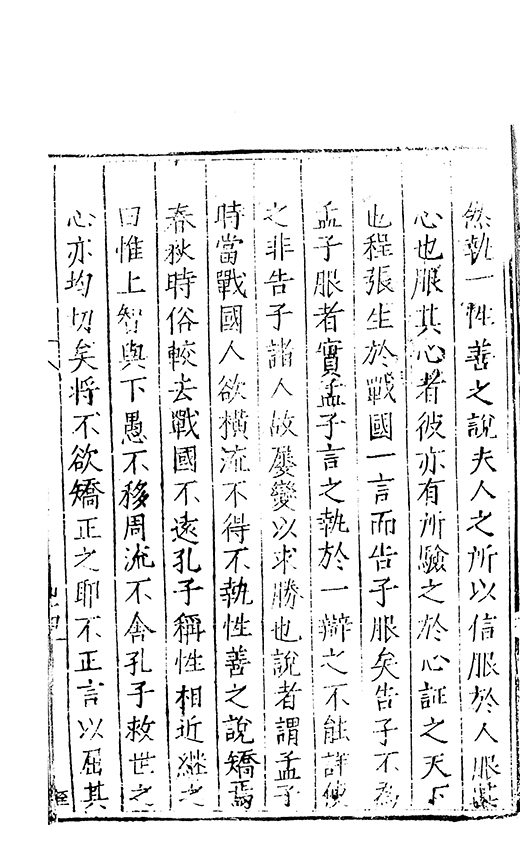 然執一性善之說夫人之所以信服於人服其
心也服其心者彼亦有所驗之於心証之天下
也程張生於戰國一言而告子服矣告子不為
孟子服者實孟子言之執於一辯之不能詳使
之非告子諸人故屢變以求勝也說者謂孟子
時當戰國人欲橫流不得不執性善之說矯焉
春秋時俗較去戰國不遠孔子稱性相近繼之
曰惟上智與下愚不移周流不舍孔子救世之
心亦均切矣將不欲矯正之耶不正言以屈其